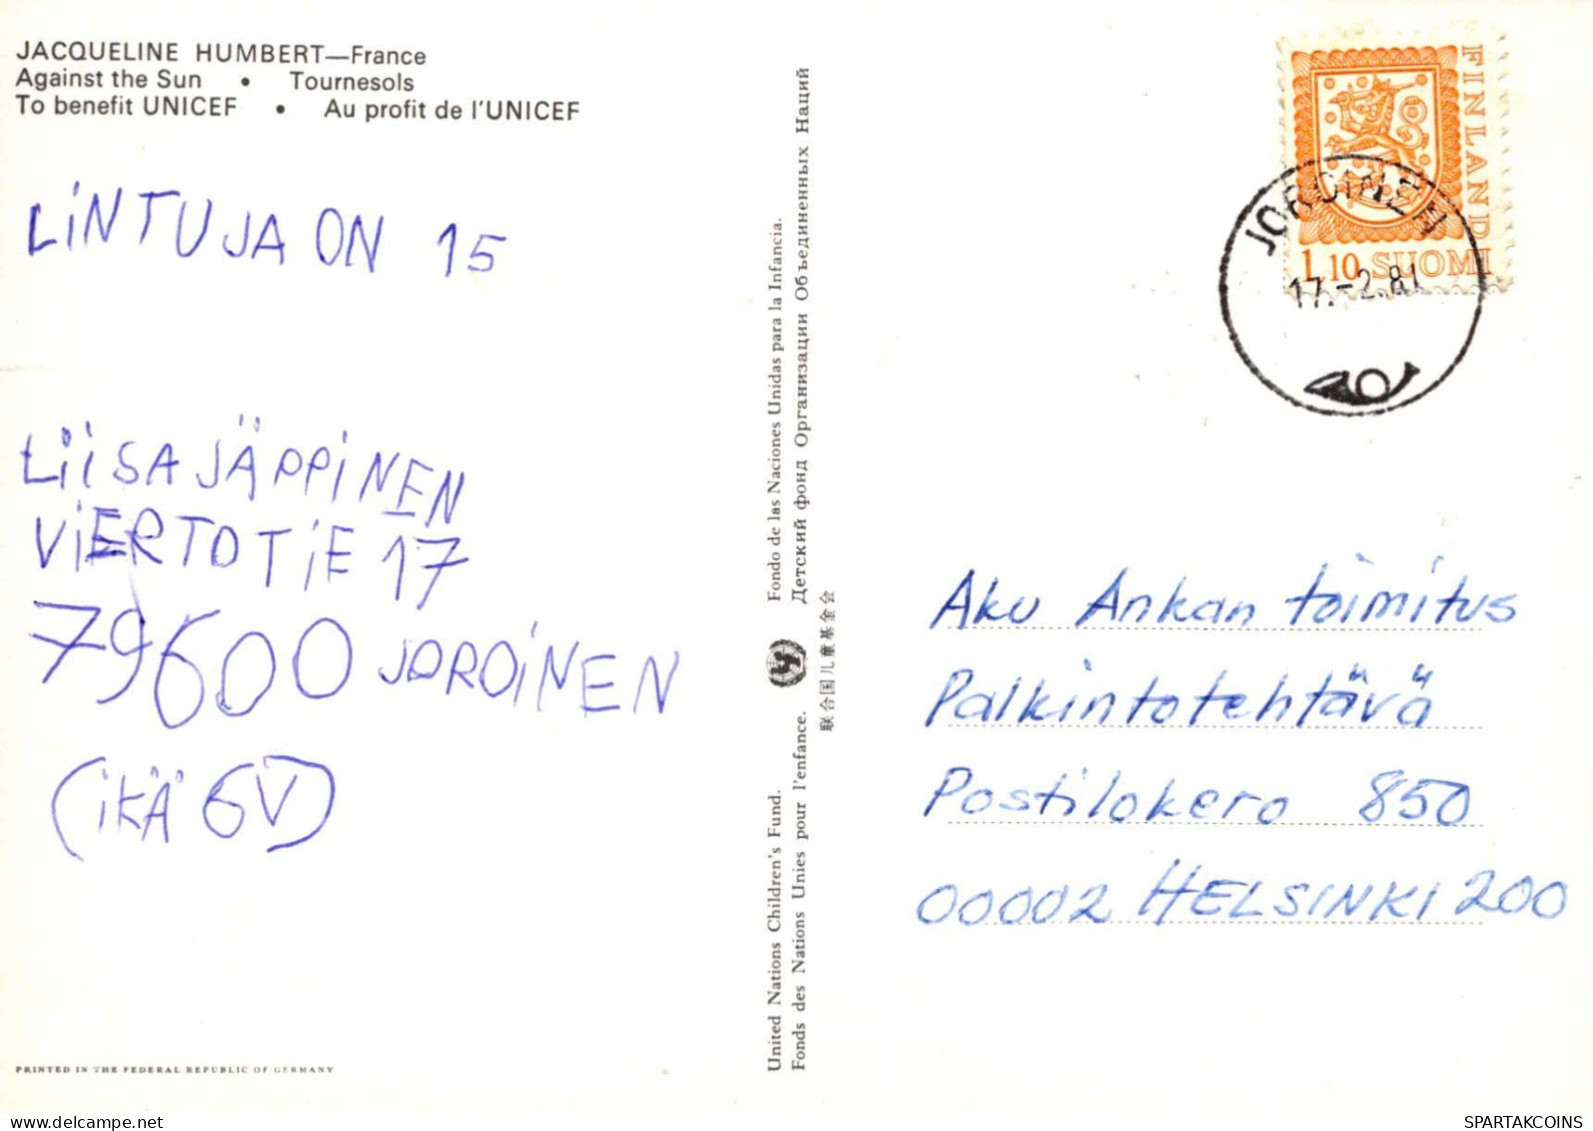 JACQUELINE HUMBERT—France
Against the Sun • Tournesols
To benefit UNICEF • Au profit de l'UNICEF
LiNTUJA ON 15
LiiSA JÄPPiNEN
ViERTOTiE 17
79600 JOROiNEN
(iKÄ 6V)
PRINTED IN THE FEDERAL REPUBLIC OF GERMANY
United Nations Children's Fund. Fondo de las Naciones Unidas para la Infancia.
Fonds des Nations Unies pour l'enfance. Детский фонд Организации Объединенных Наций
联合国儿童基金会
FINLAND
1,10 SUOMI
JOROINEN
17.-2.81
Aku Ankan toimitus
Palkintotehtävä
Postilokero 850
00002 HELSINKI 200
delcampe.net
SPARTAKCOINS